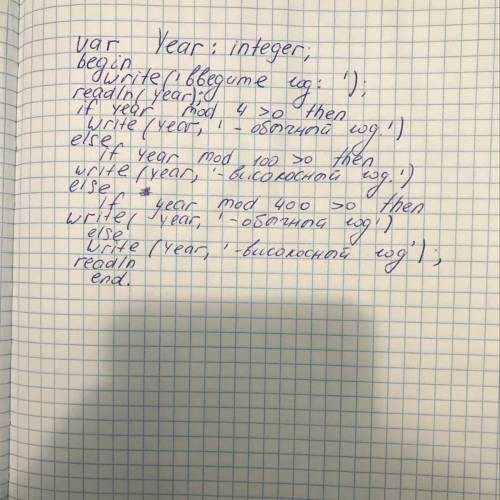 var Year: integer;
begin
write('введите год: ');
readln(year);
if year mod 4 >0 then
write(year, '- обычный год.')
else
if year mod 100 >0 then
write(year, '-високосный год.')
else
if year mod 400 >0 then
write( year, '-обычный год')
else
write(year, '-високосный год');
readln
end.